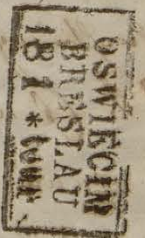 OSWIECIM
BRESLAU
181 * tour